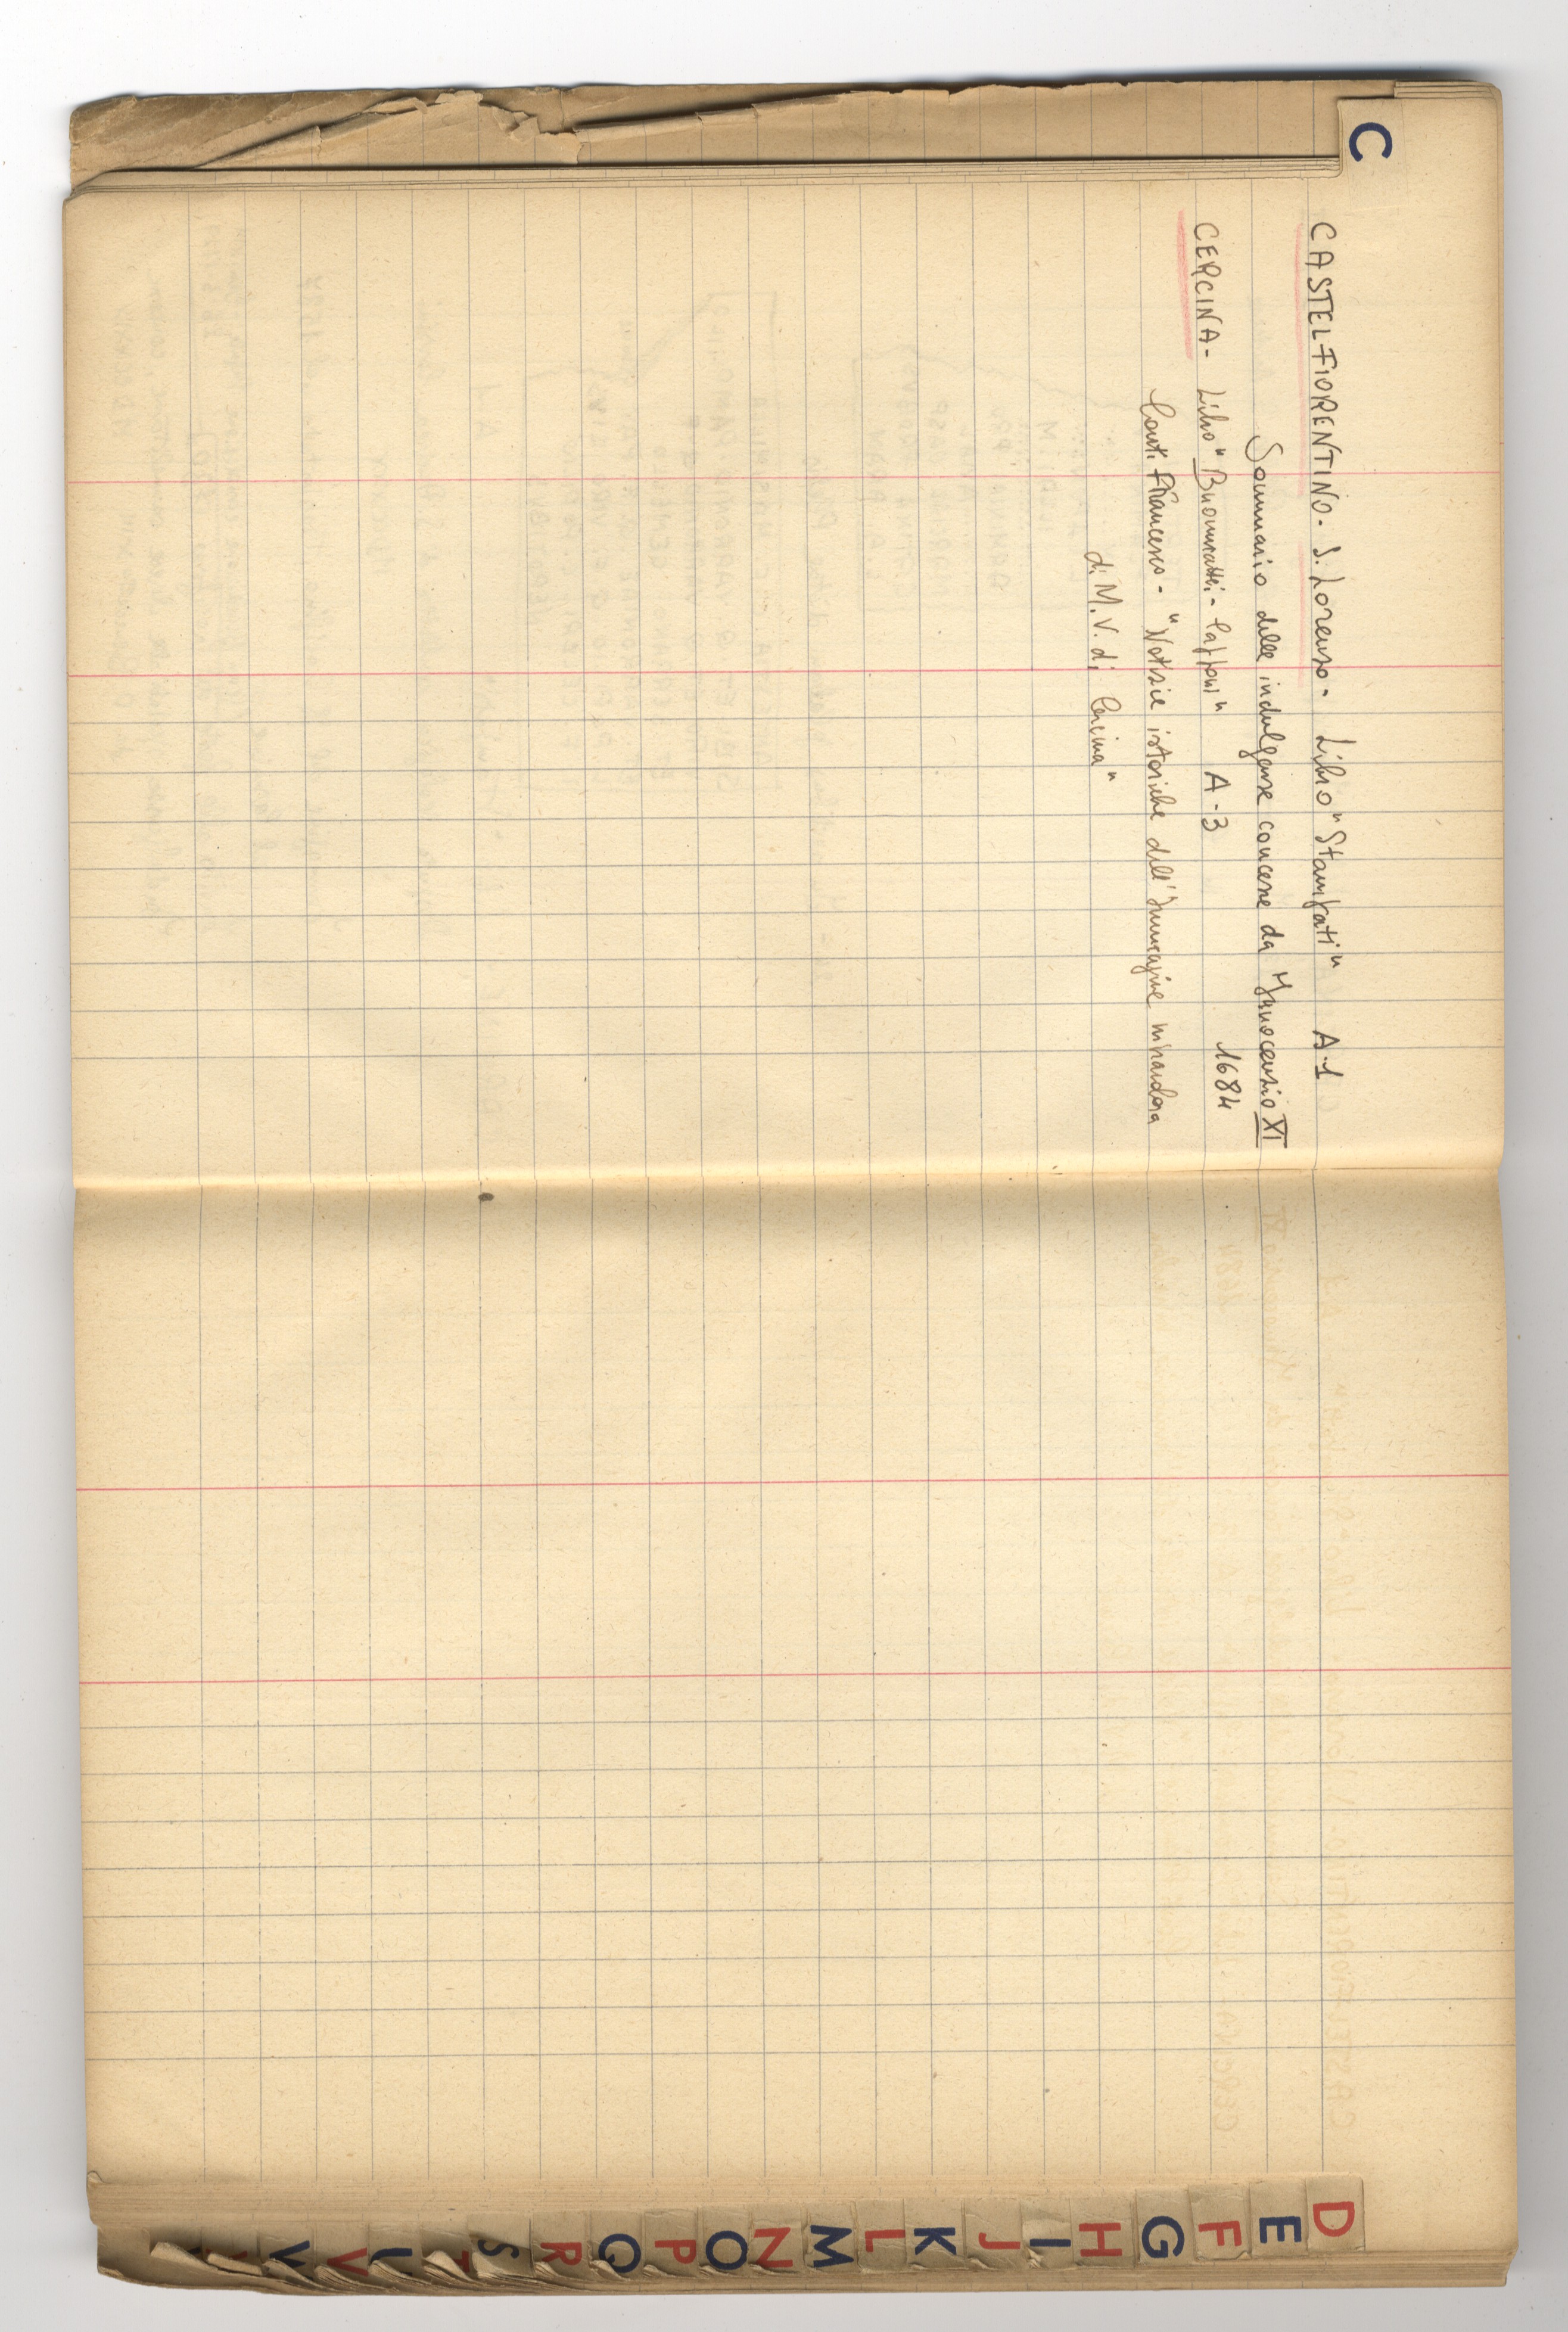 C
CASTELFIORENTINO - S. Lorenzo - Libro "Stampati" A-1
Sommario delle indulgenze concesse da Innocenzo XI
1684
CERCINA - Libro "Buonuratti - Capponi" A-3
Conti Francesco - "Notizie istoriche dell'Immagine miracolosa
di M. V. di Cercina"
D
E
F
G
H
I
J
K
L
M
N
O
P
Q
R
S
T
U
V